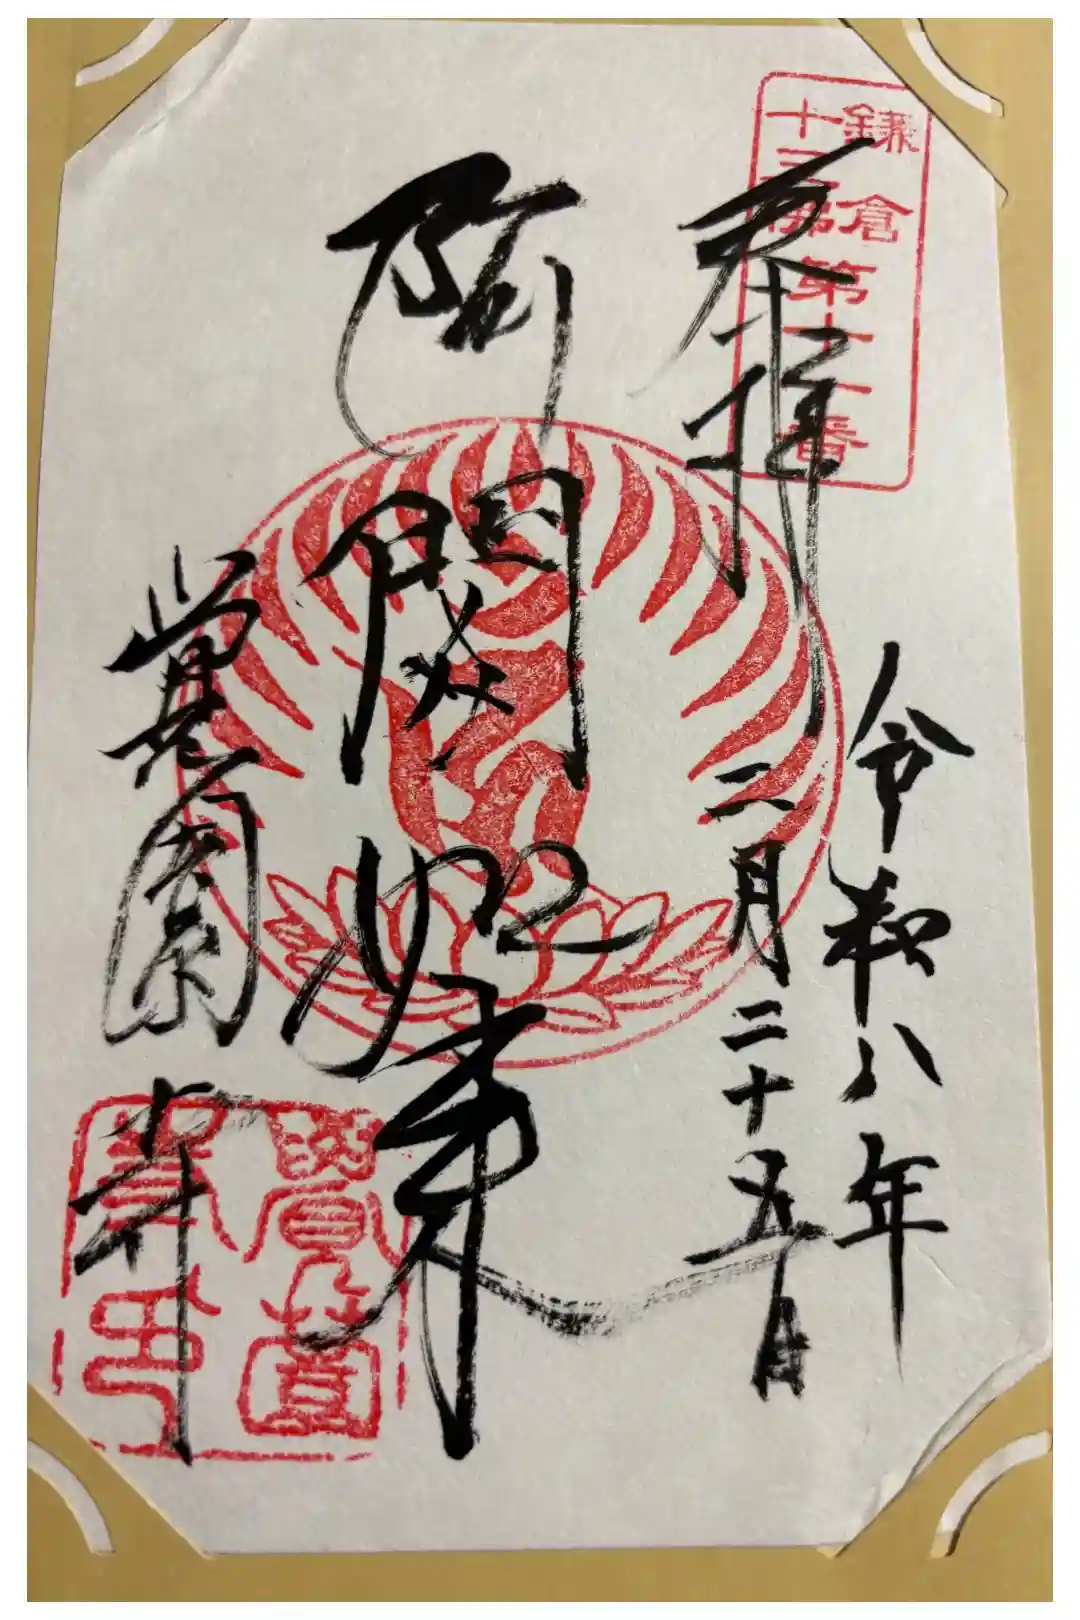 鎌倉
十三佛第十一番
奉拝
令和八年
二月二十五日
阿閦如来
覚園寺
覺園
寺印